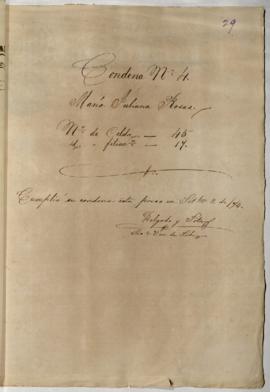 29
Condena Nº 4.
María Juliana Rosas.
Nº de Celda — 45
" " filiac.n — 17.
Cumplió su condena esta presa en Set bre 2 de 194.
Delgado y